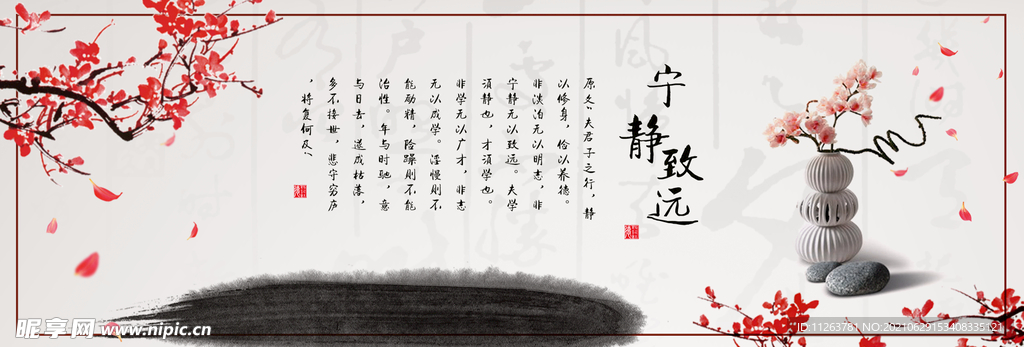 宁静致远
原文:“夫君子之行，静
以修身，俭以养德。
非淡泊无以明志，非
宁静无以致远。夫学
须静也，才须学也。
非学无以广才，非志
无以成学。淫慢则不
能励精，险躁则不能
治性。年与时驰，意
与日去，遂成枯落，
多不接世，悲守穷庐
，将复何及”
昵享网 www.nipic.cn
ID:11263781 NO:20210629153408335121